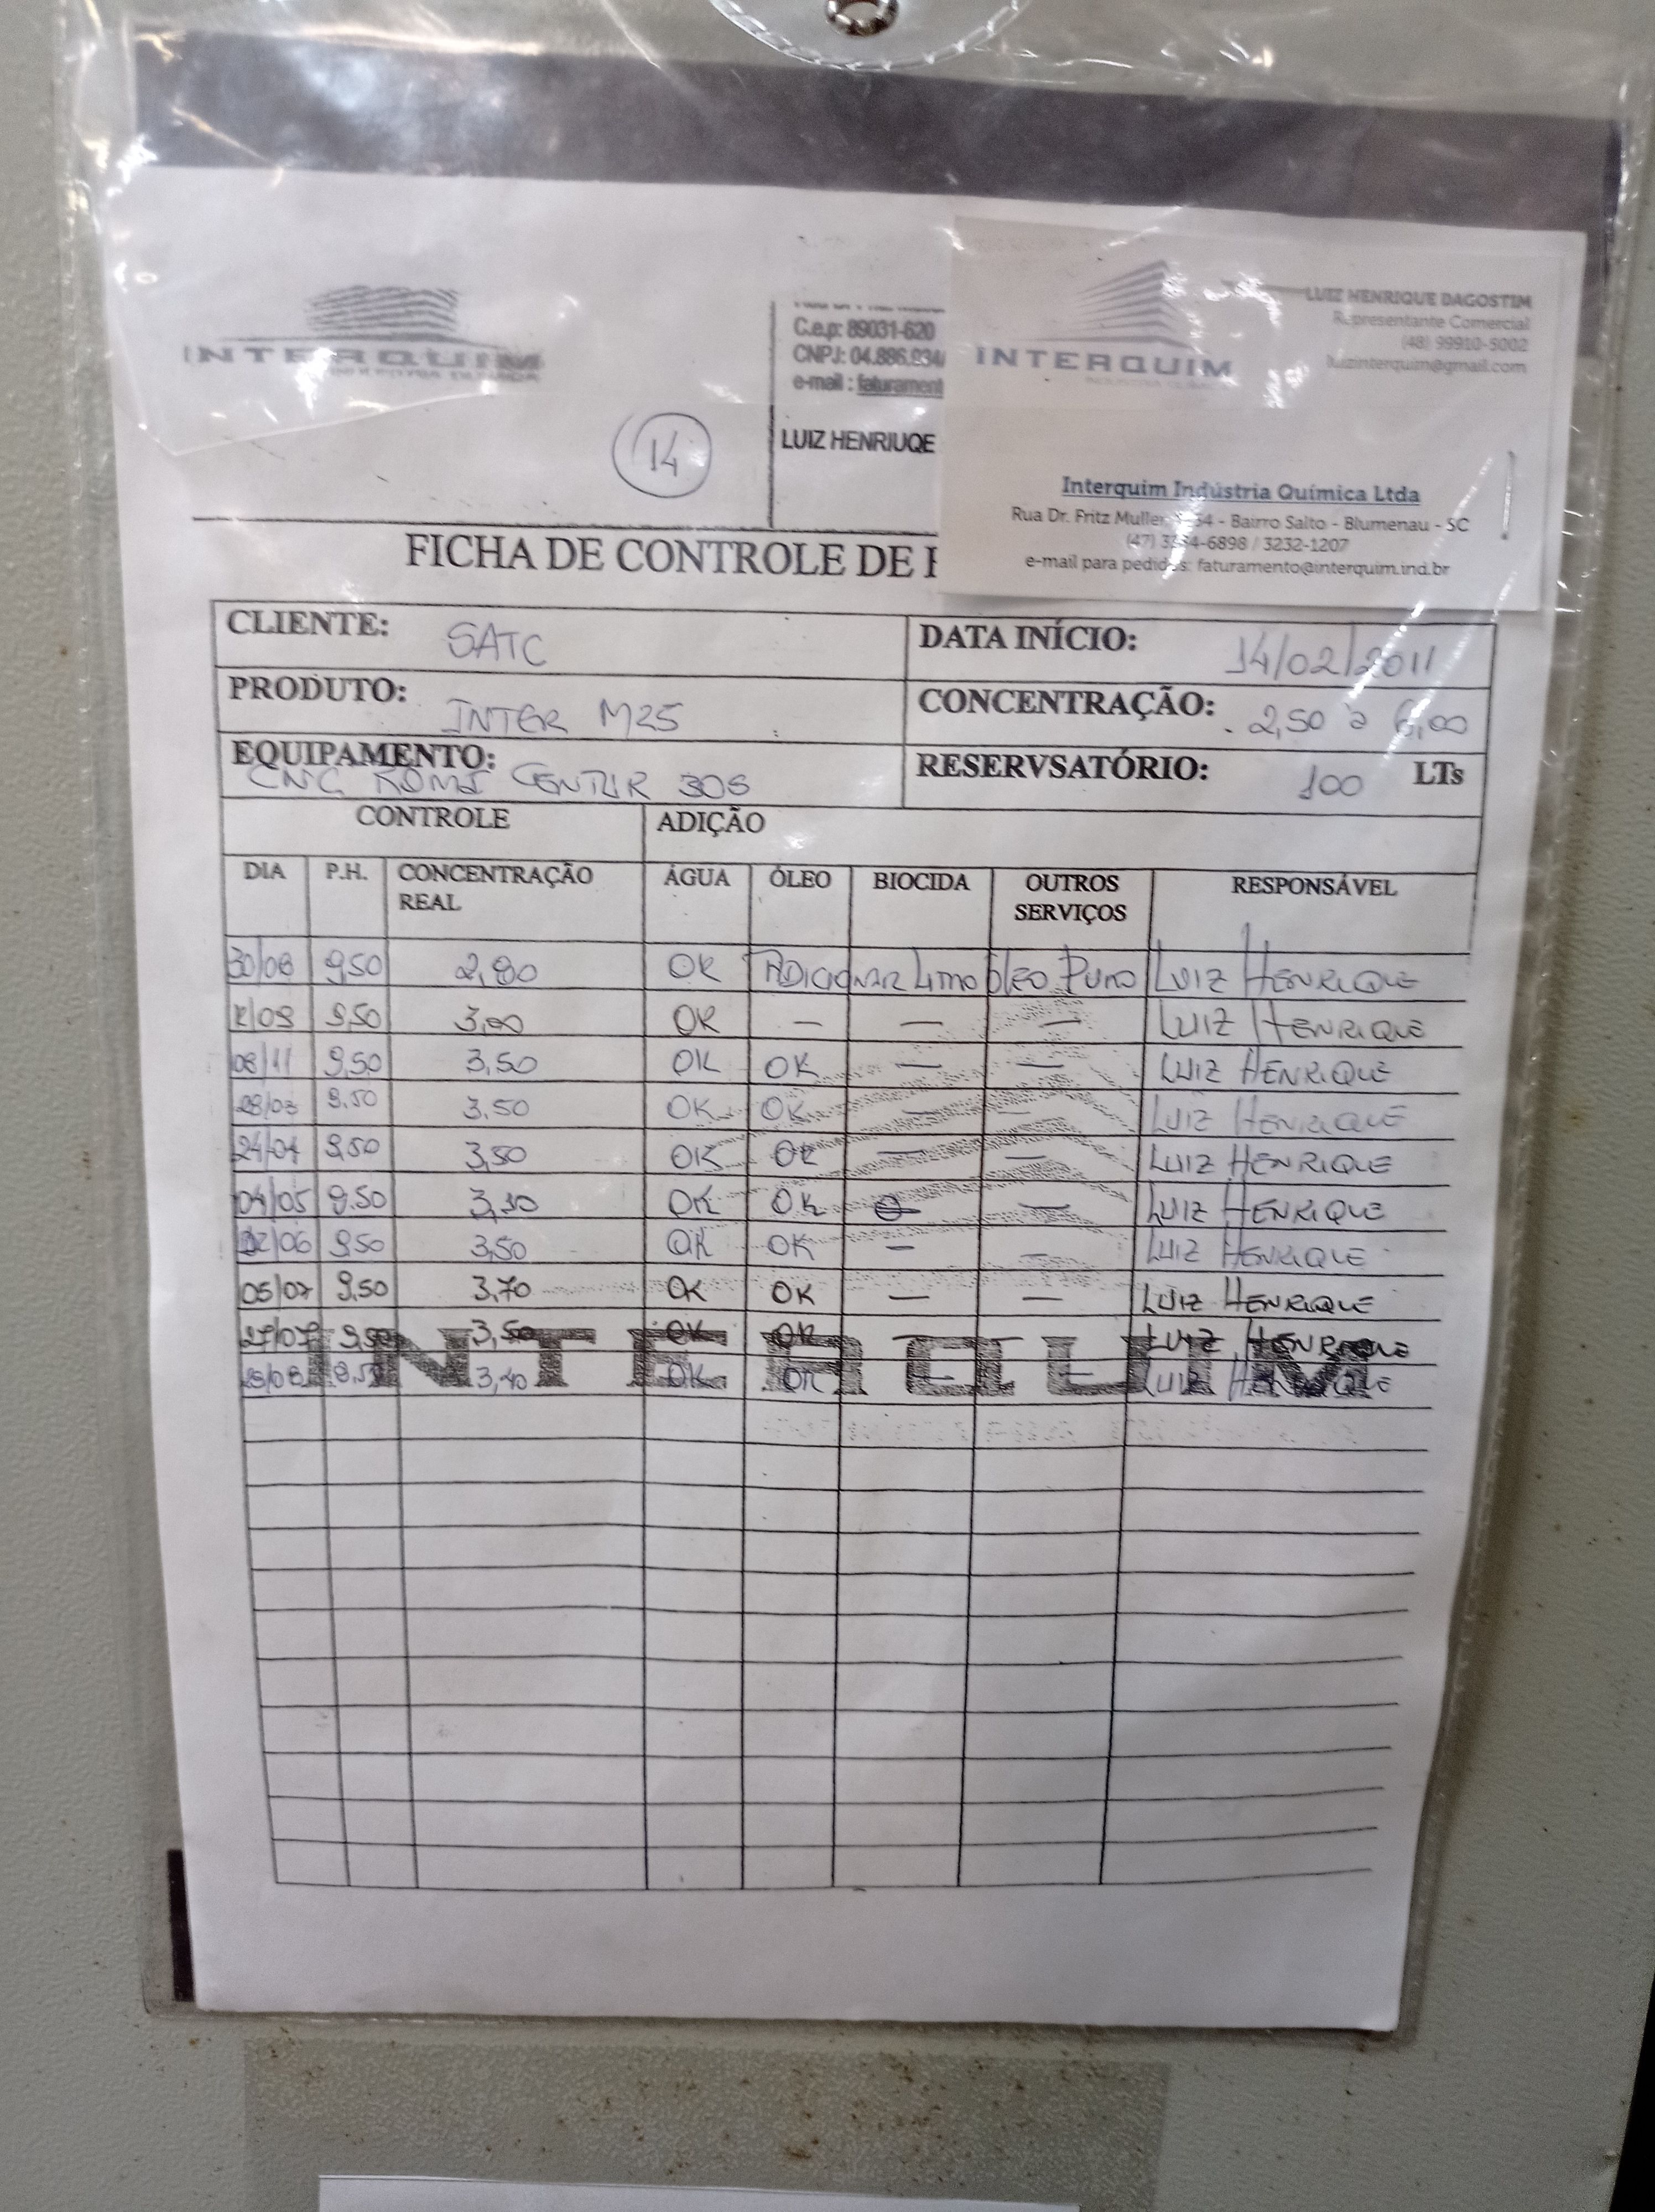 INTERQUIM
INDÚSTRIA QUÍMICA
C.e.p: 89031-620
CNPJ: 04.886.934/
e-mail : faturament
LUIZ HENRIUQE
14
INTERQUIM
LUIZ HENRIQUE DAGOSTIM
Representante Comercial
(48) 99910-5002
luizinterquim@gmail.com
Interquim Indústria Química Ltda
Rua Dr. Fritz Muller - Bairro Salto - Blumenau - SC
(47) -6898 / 3232-1207
e-mail para pedidos: faturamento@interquim.ind.br
FICHA DE CONTROLE DE
CLIENTE: SATC DATA INÍCIO: 14/02/2011
PRODUTO: INTER M25 CONCENTRAÇÃO: 2,50 à 6,00
EQUIPAMENTO: CNC ROMI CENTUR 30S RESERVSATÓRIO: 100 LTs
CONTROLE ADIÇÃO
DIA P.H. CONCENTRAÇÃO REAL ÁGUA ÓLEO BIOCIDA OUTROS SERVIÇOS RESPONSÁVEL
30/08 9,50 2,80 OK ADICIONAR LITRO ÓLEO PURO LUIZ HENRIQUE
9,50 3,00 OK — — — LUIZ HENRIQUE
08/11 9,50 3,50 OK OK — — LUIZ HENRIQUE
28/03 9.50 3,50 OK OK — — LUIZ HENRIQUE
24/04 9,50 3,50 OK OK — — LUIZ HENRIQUE
04/05 9.50 OK OK — LUIZ HENRIQUE
02/06 9,50 3,50 OK OK — — LUIZ HENRIQUE
05/07 9,50 3,70 OK OK — — LUIZ HENRIQUE
27/07 9,50 3,50 OK OK LUIZ HENRIQUE
9,50 3,40 OK OK LUIZ HENRIQUE
INTERQUIM